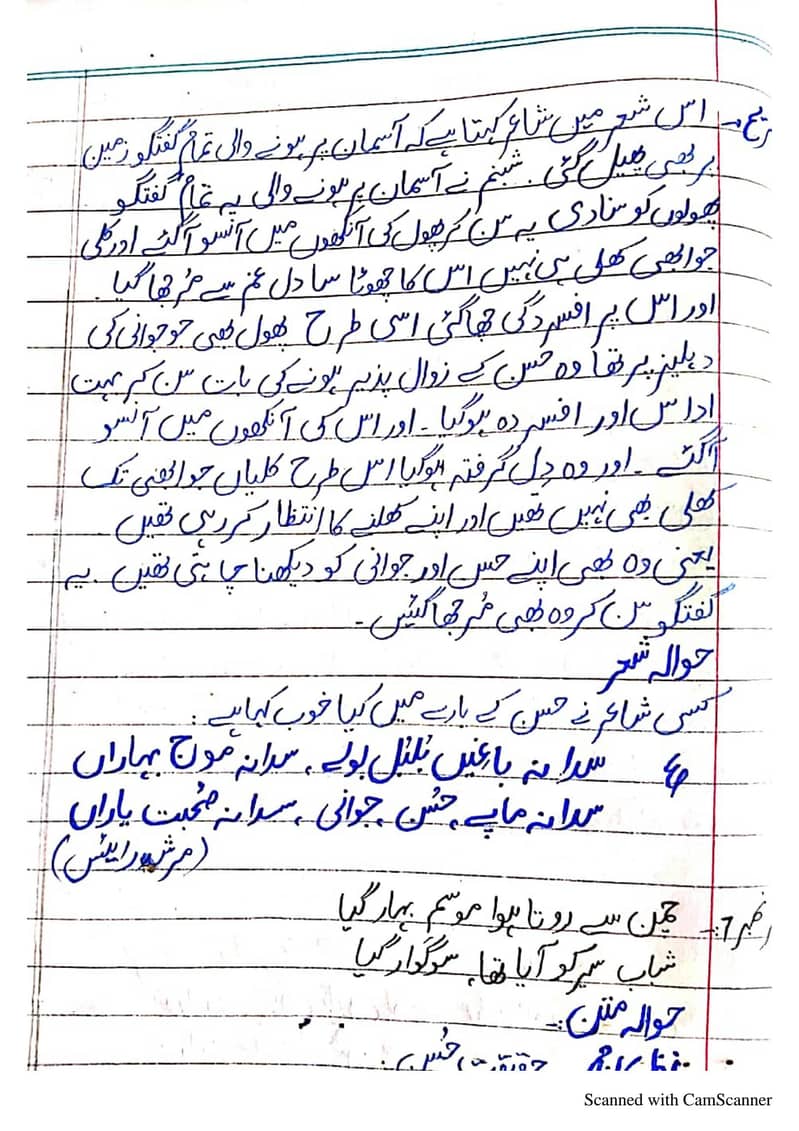 اس شعر میں شاعر کہتا ہے کہ آسمان پر ہونے والی تمام گفتگو زمین
پر بھی پھیل گئی۔ شبنم نے آسمان پر ہونے والی یہ تمام گفتگو
پھولوں کو سنا دی یہ سن کر پھول کی آنکھوں میں آنسو آ گئے اور کلی
جو ابھی کھلی ہی نہیں اس کا چھوٹا سا دل غم سے مُرجھا گیا۔
اور اس پر افسردگی چھا گئی اسی طرح پھول بھی جو جوانی کی
دہلیز پر تھا وہ حسن کے زوال پذیر ہونے کی بات سن کر بہت
اداس اور افسردہ ہو گیا۔ اور اس کی آنکھوں میں آنسو
آ گئے۔ اور وہ دل گرفتہ ہو گیا اس طرح کلیاں جو ابھی تک
کھلی بھی نہیں تھیں اور اپنے کھلنے کا انتظار کر رہی تھیں۔
یعنی وہ بھی اپنے حسن اور جوانی کو دیکھنا چاہتی تھیں۔ یہ
گفتگو سن کر وہ بھی مُرجھا گئیں۔
حوالہ شعر
کسی شاعر نے حسن کے بارے میں کیا خوب کہا ہے:
سدا نہ باغیں بُلبُل بولے، سدا نہ موج بہاراں
سدا نہ ماپے، حُسن، جوانی، سدا نہ صُحبت یاراں
چمن سے روتا ہوا موسم بہار گیا
شباب سیر کو آیا تھا، سوگوار گیا
حوالہ متن:-
حقیقت حُسن
Scanned with CamScanner